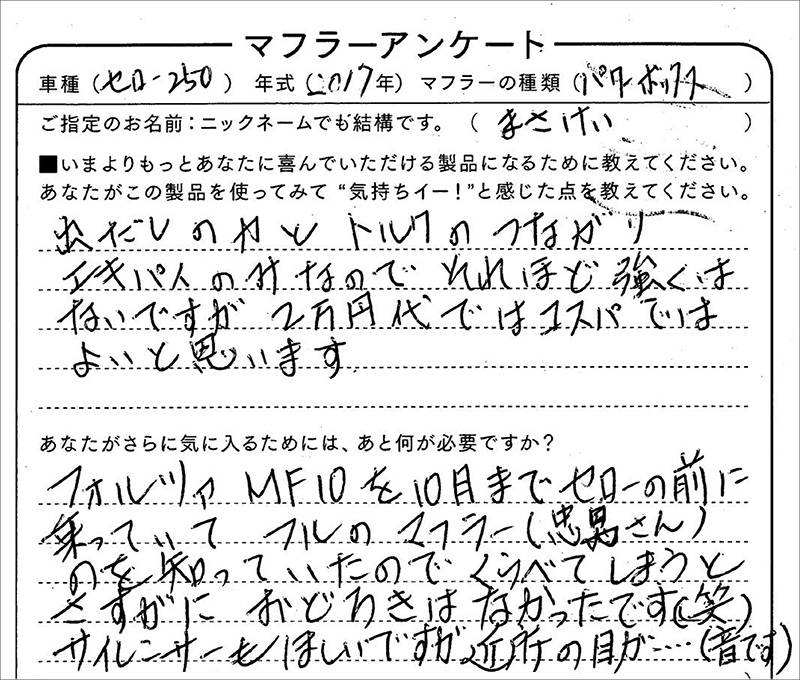 マフラーアンケート
車種（セロー250） 年式（2017年）マフラーの種類（パワーボックス）
ご指定のお名前：ニックネームでも結構です。（まさけい）
■いまよりもっとあなたに喜んでいただける製品になるために教えてください。
あなたがこの製品を使ってみて“気持ちイー！”と感じた点を教えてください。
出だしのカと トルクのつながり
エキパイのみなので それほど強くは
ないですが 2万円代ではコスパでは
よいと思います
あなたがさらに気に入るためには、あと何が必要ですか？
フォルツァ MF10を10月までセローの前に
乗っていて フルのマフラー（忠男さん）
のを知っていたので くらべてしまうと
さすがに おどろきはなかったです（笑）
サイレンサーもほしいですが 近所の目が…（音です）